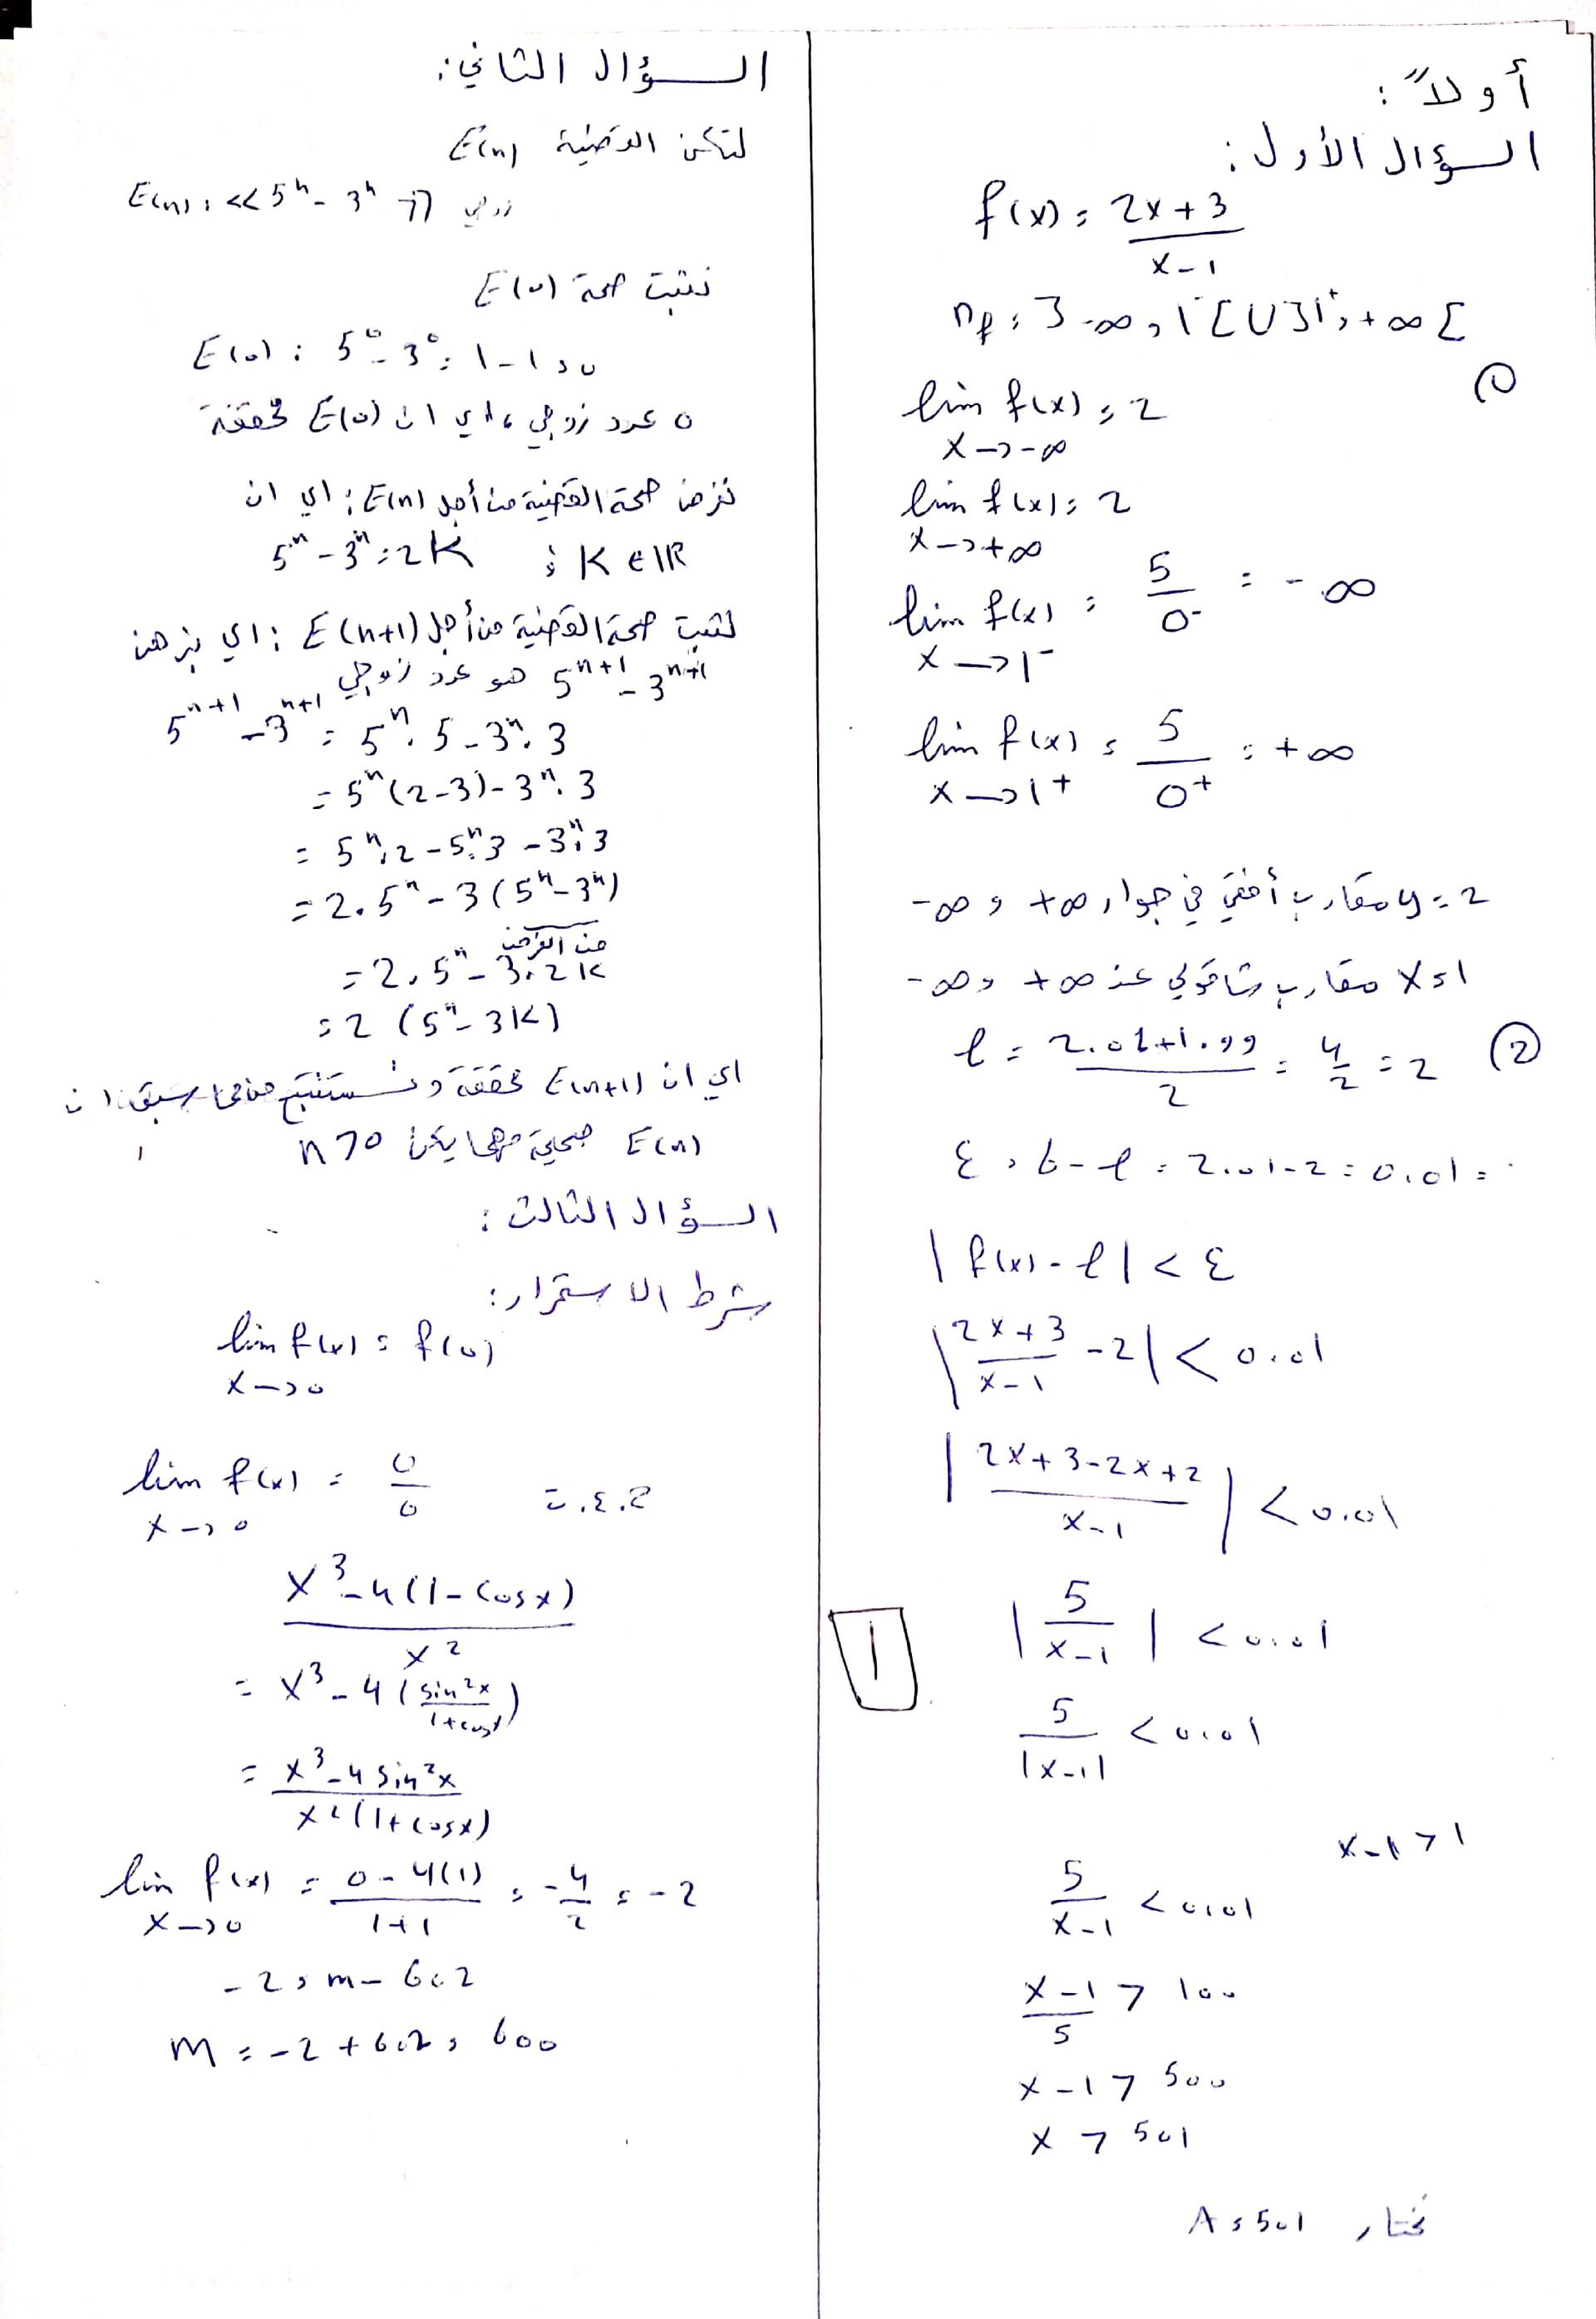 أولاً:
السؤال الأول:
f(x) = \frac{2x+3}{x-1}
D_f = ]-∞, 1^-[ ∪ ]1^+, +∞[
① \lim_{x→-∞} f(x) = 2
\lim_{x→+∞} f(x) = 2
\lim_{x→1^-} f(x) = \frac{5}{0^-} = -∞
\lim_{x→1^+} f(x) = \frac{5}{0^+} = +∞
y = 2 مقارب أفقي في جوار +∞ و -∞
x = 1 مقارب شاقولي عند +∞ و -∞
② ℓ = \frac{2.01+1.99}{2} = \frac{4}{2} = 2
ε = b - ℓ = 2.01 - 2 = 0.01
|f(x) - ℓ| < ε
|\frac{2x+3}{x-1} - 2| < 0.01
|\frac{2x+3-2x+2}{x-1}| < 0.01
|\frac{5}{x-1}| < 0.01
1
\frac{5}{|x-1|} < 0.01
x-1 > 1
\frac{5}{x-1} < 0.01
\frac{x-1}{5} > 100
x-1 > 500
x > 501
نختار A = 501
السؤال الثاني:
لتكن القضية E(n)
E(n): << 5^n - 3^n زوجي
نثبت صحة E(0)
E(0): 5^0 - 3^0 = 1-1 = 0
0 عدد زوجي، اي ان E(0) محققة
نفرض صحة القضية من أجل E(n) ; اي ان
5^n - 3^n = 2K ; K ∈ ℝ
لنثبت صحة القضية من أجل E(n+1) ; اي نبرهن
5^{n+1} - 3^{n+1} هو عدد زوجي
5^{n+1} - 3^{n+1} = 5^n . 5 - 3^n . 3
= 5^n (2-3) - 3^n . 3
= 5^n . 2 - 5^n . 3 - 3^n . 3
= 2 . 5^n - 3(5^n - 3^n)
من الفرض
= 2 . 5^n - 3 . 2K
= 2 (5^n - 3K)
اي ان E(n+1) محققة ونستنتج من ما سبق ان
E(n) صحيحة مهما يكن n > 0
السؤال الثالث:
شرط الاستمرار:
\lim_{x→0} f(x) = f(0)
\lim_{x→0} f(x) = \frac{0}{0} ح.ع.ت
\frac{x^3 - 4(1-cosx)}{x^2}
= x^3 - 4(\frac{sin^2x}{1+cosx})
= \frac{x^3 - 4sin^2x}{x^2(1+cosx)}
\lim_{x→0} f(x) = \frac{0-4(1)}{1+1} = -\frac{4}{2} = -2
-2 = m - 602
m = -2 + 602 = 600